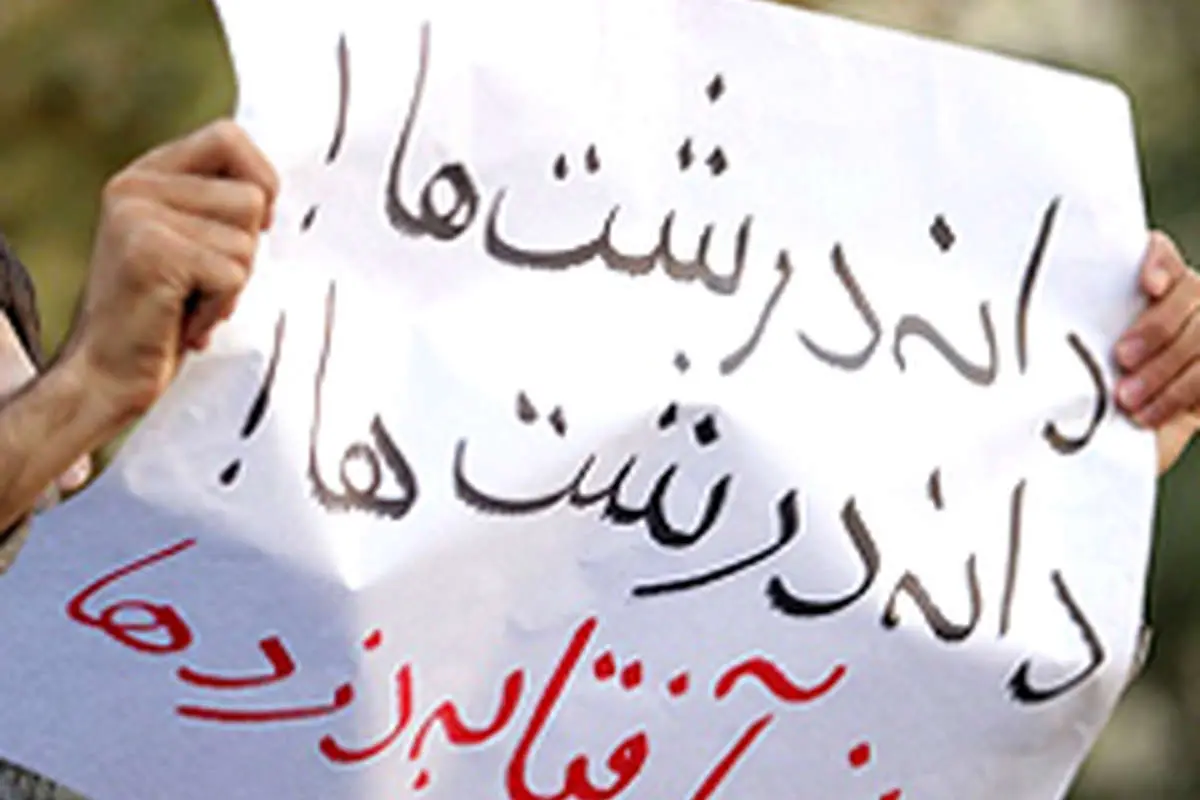 دانه درشت‌ها!
دانه درشت‌ها!
آفتابه دزدها